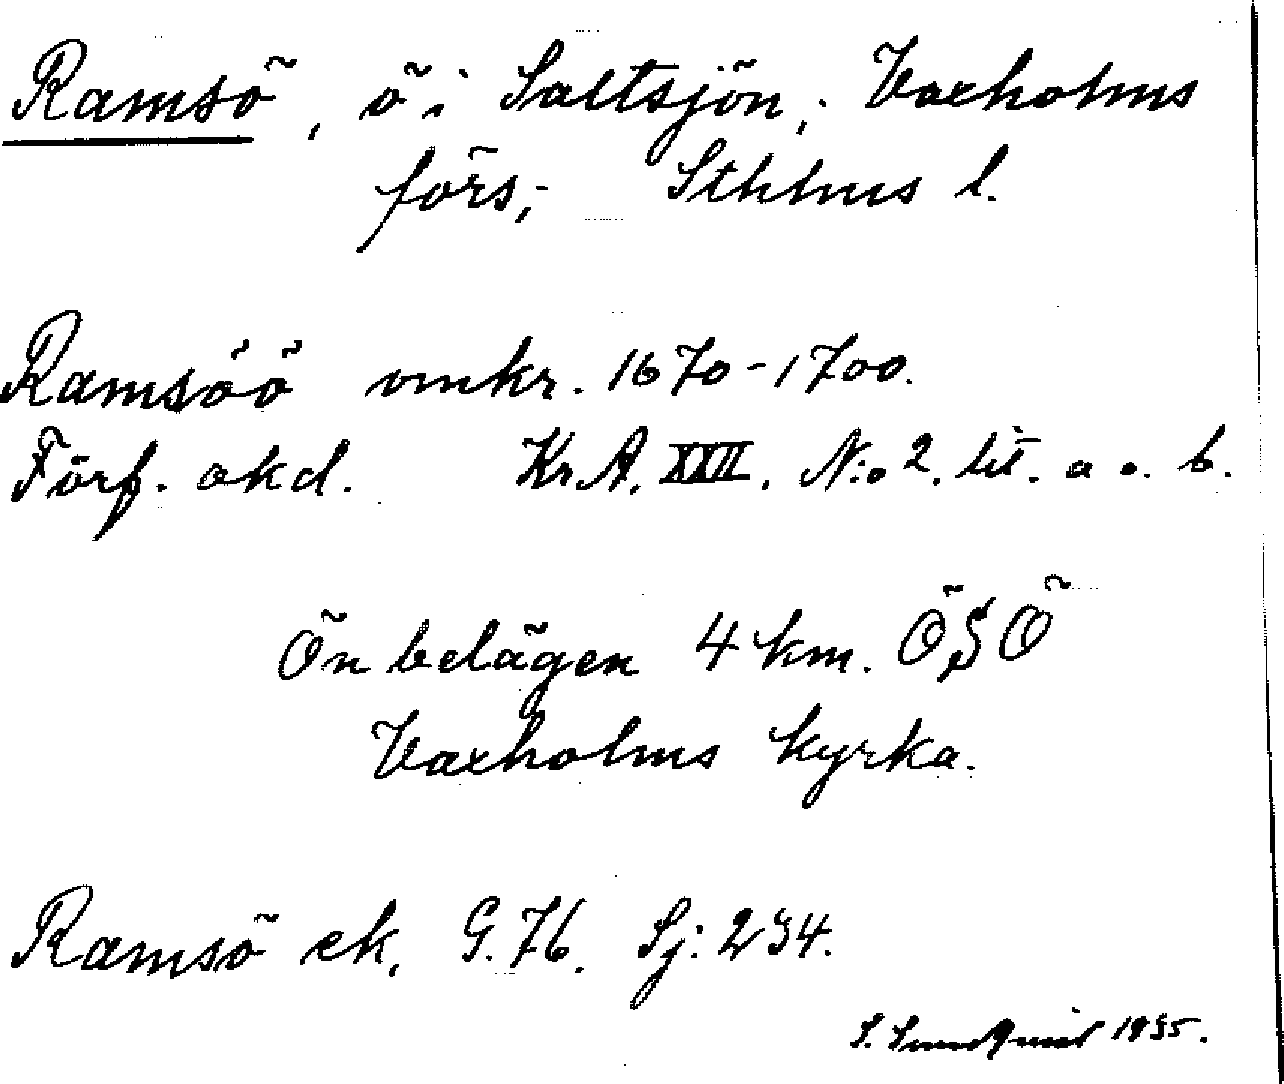 Ramsö, ö i Saltsjön, Vaxholms
förs, Sthlms l.
Ramsöö omkr. 1670-1700.
Förf. okd. Kr.A. XXII. N:o 2. lit. a o. b.
Ön belägen 4 km. ÖSÖ
Vaxholms kyrka.
Ramsö ek. G. 76. Sj: 234.
S. 1935.